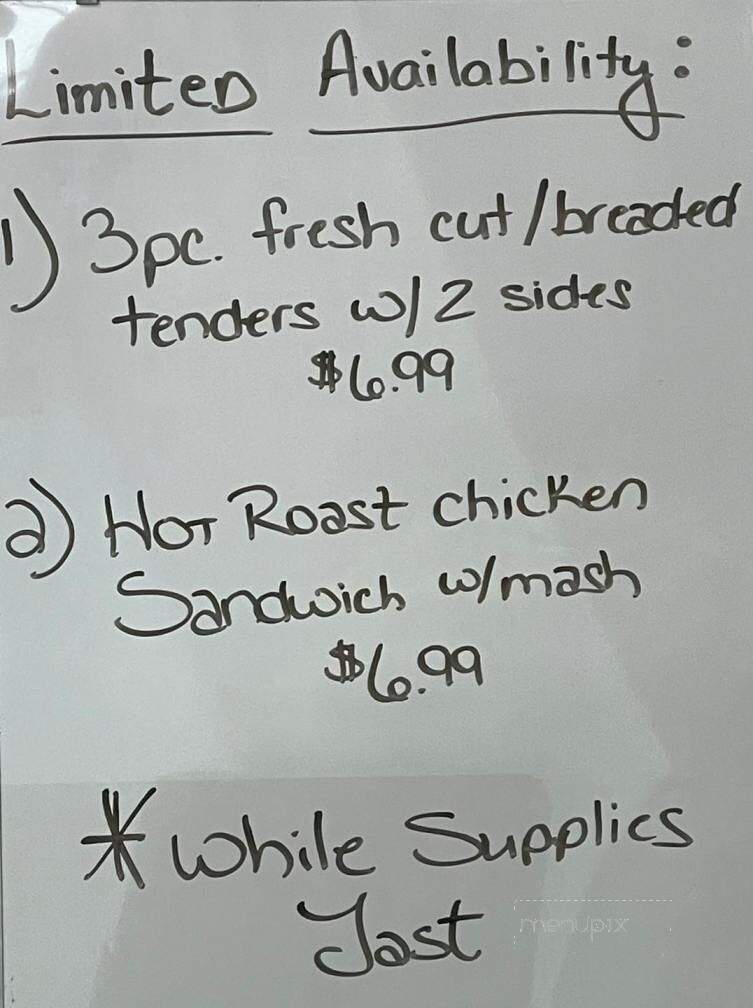 Limited Availability:
1) 3pc. fresh cut/breaded
tenders w/2 sides
$6.99
2) Hot Roast chicken
Sandwich w/mash
$6.99
* While Supplies
Last
menupix